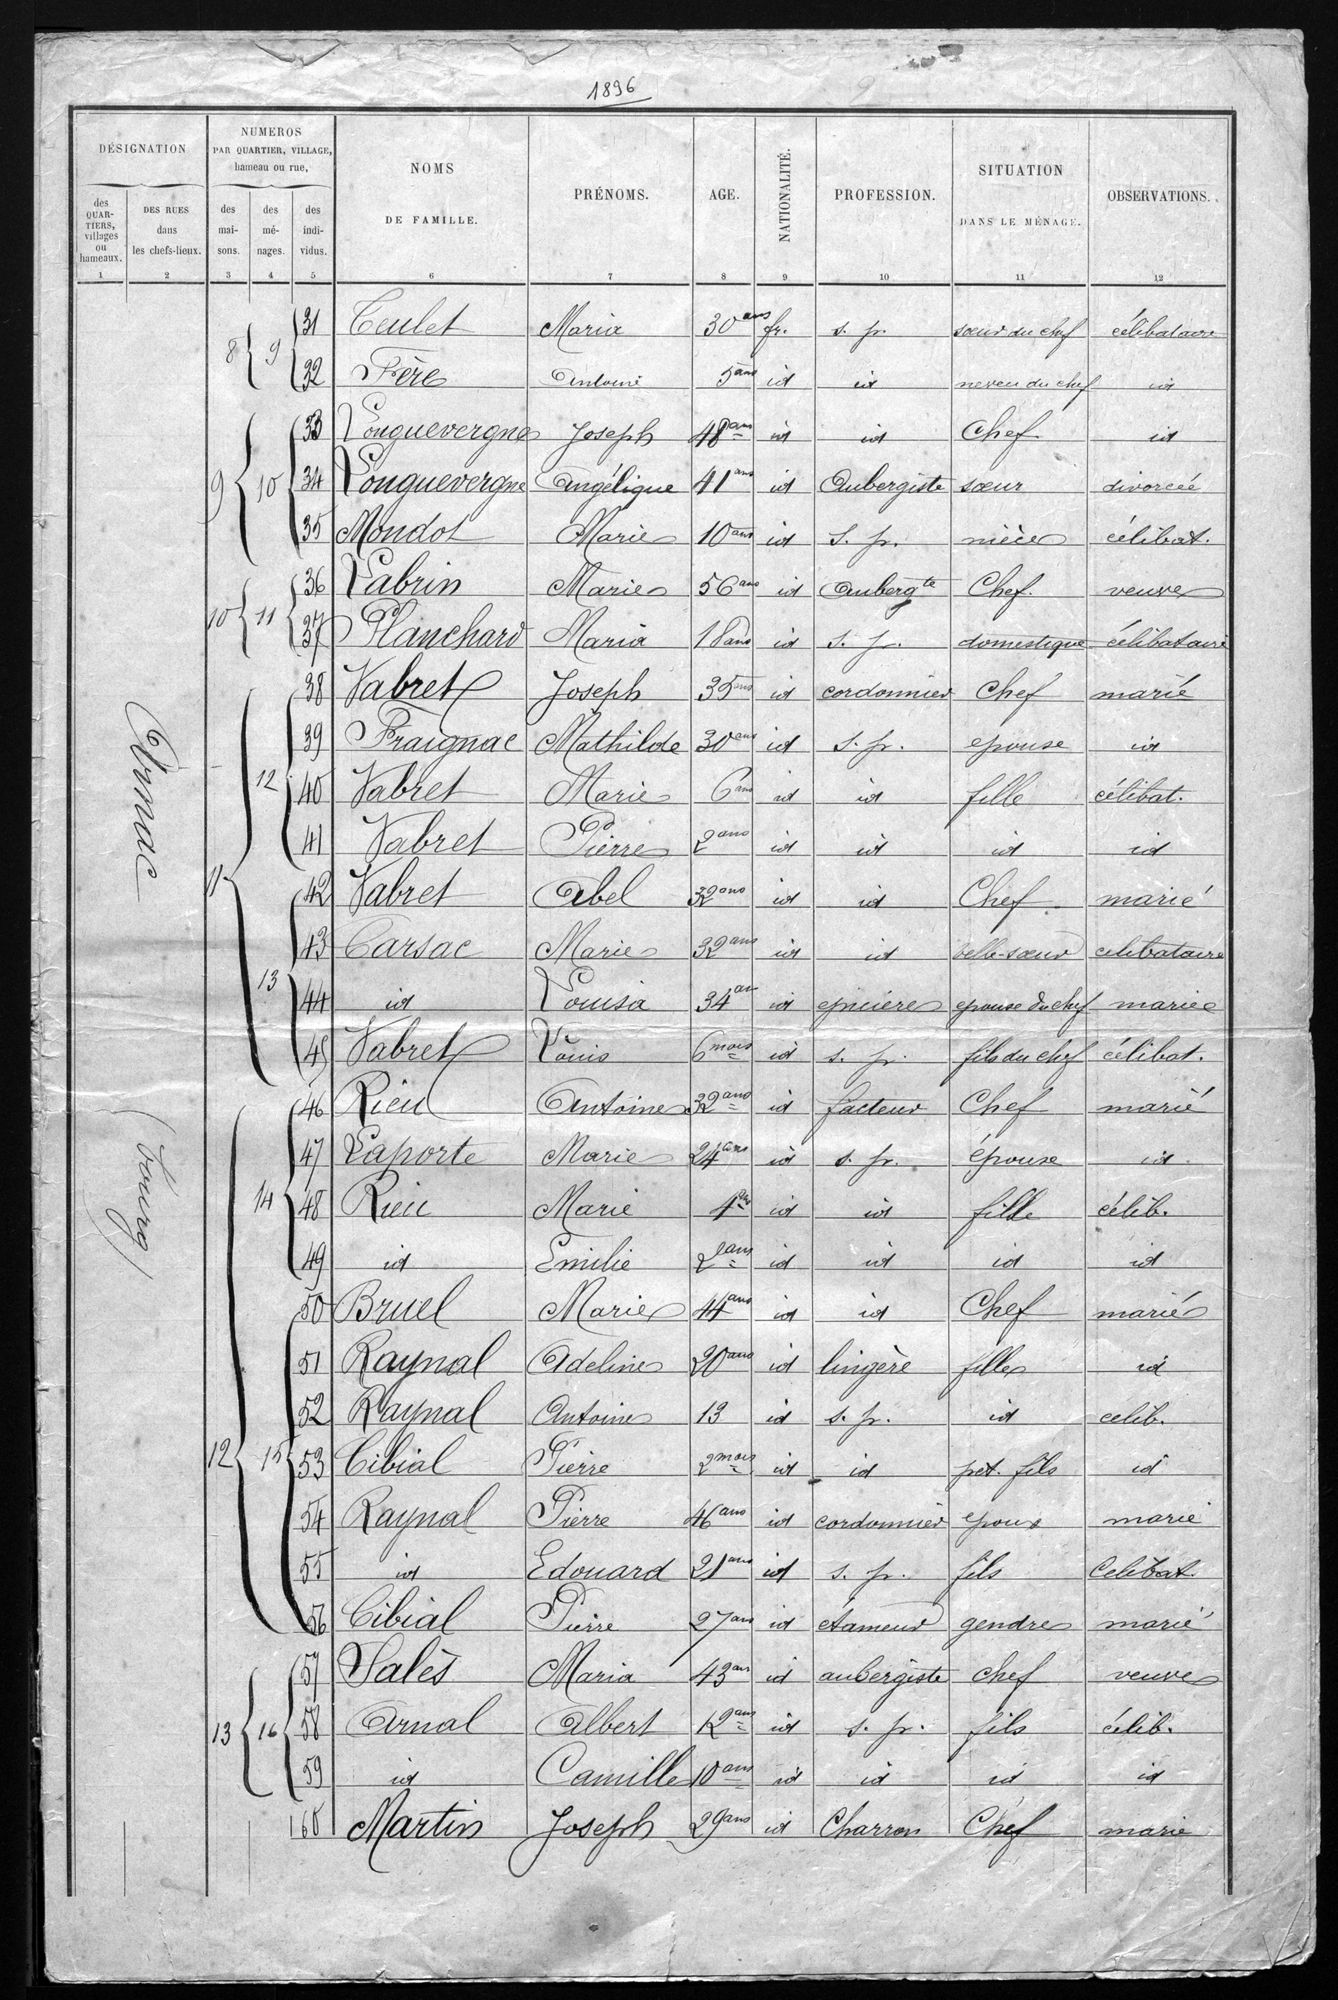 1896
DÉSIGNATION
NUMEROS
PAR QUARTIER, VILLAGE,
hameau ou rue,
NOMS
DE FAMILLE.
PRÉNOMS.
AGE.
NATIONALITÉ.
PROFESSION.
SITUATION
DANS LE MÉNAGE.
OBSERVATIONS.
des QUARTIERS, villages ou hameaux.
DES RUES dans les chefs-lieux.
des maisons.
des ménages.
des individus.
1 2 3 4 5 6 7 8 9 10 11 12
Arnac
(bourg)
8 9 31 Teulet Maria 30 ans fr. s. pr. sœur du chef célibataire
32 Fère Antoine 5 ans id id neveu du chef id
9 10 33 Longuevergne Joseph 48 ans id id Chef id
34 Longuevergne Angélique 41 ans id Aubergiste sœur divorcée
35 Mondot Marie 10 ans id S. pr. nièce célibat.
10 11 36 Labrin Marie 56 ans id Aubergte Chef. veuve
37 Planchard Maria 18 ans id s. pr. domestique célibataire
11 12 38 Vabret Joseph 35 ans id cordonnier Chef marié
39 Fraignac Mathilde 30 ans id s. pr. epouse id
40 Vabret Marie 6 ans id id fille célibat.
41 Vabret Pierre 2 ans id id id id
13 42 Vabret Abel 32 ans id id Chef marié
43 Carsac Marie 32 ans id id belle-sœur celibataire
44 id Louisa 34 an id epiciere epouse du chef mariée
45 Vabret Louis 6 mois id s. pr. fils du chef célibat.
12 14 46 Rieu Antoine 32 ans id facteur Chef marié
47 Laporte Marie 24 ans id s. pr. épouse id
48 Rieu Marie 4 ans id id fille célib.
49 id Emilie 2 ans id id id id
15 50 Bruel Marie 44 ans id id Chef marié
51 Raynal Adeline 20 ans id lingère fille id
52 Raynal Antoine 13 id s. pr. id celib.
53 Cibial Pierre 2 mois id id pet. fils id
54 Raynal Pierre 46 ans id cordonnier epoux marié
55 id Edouard 21 ans id s. pr. fils Celibat.
56 Cibial Pierre 27 ans id étameur gendre marié
13 16 57 Salès Maria 43 an id aubergiste chef veuve
58 Arnal Albert 12 ans id s. pr. fils célib.
59 id Camille 10 ans id id id id
60 Martin Joseph 29 ans id Charron Chef marié